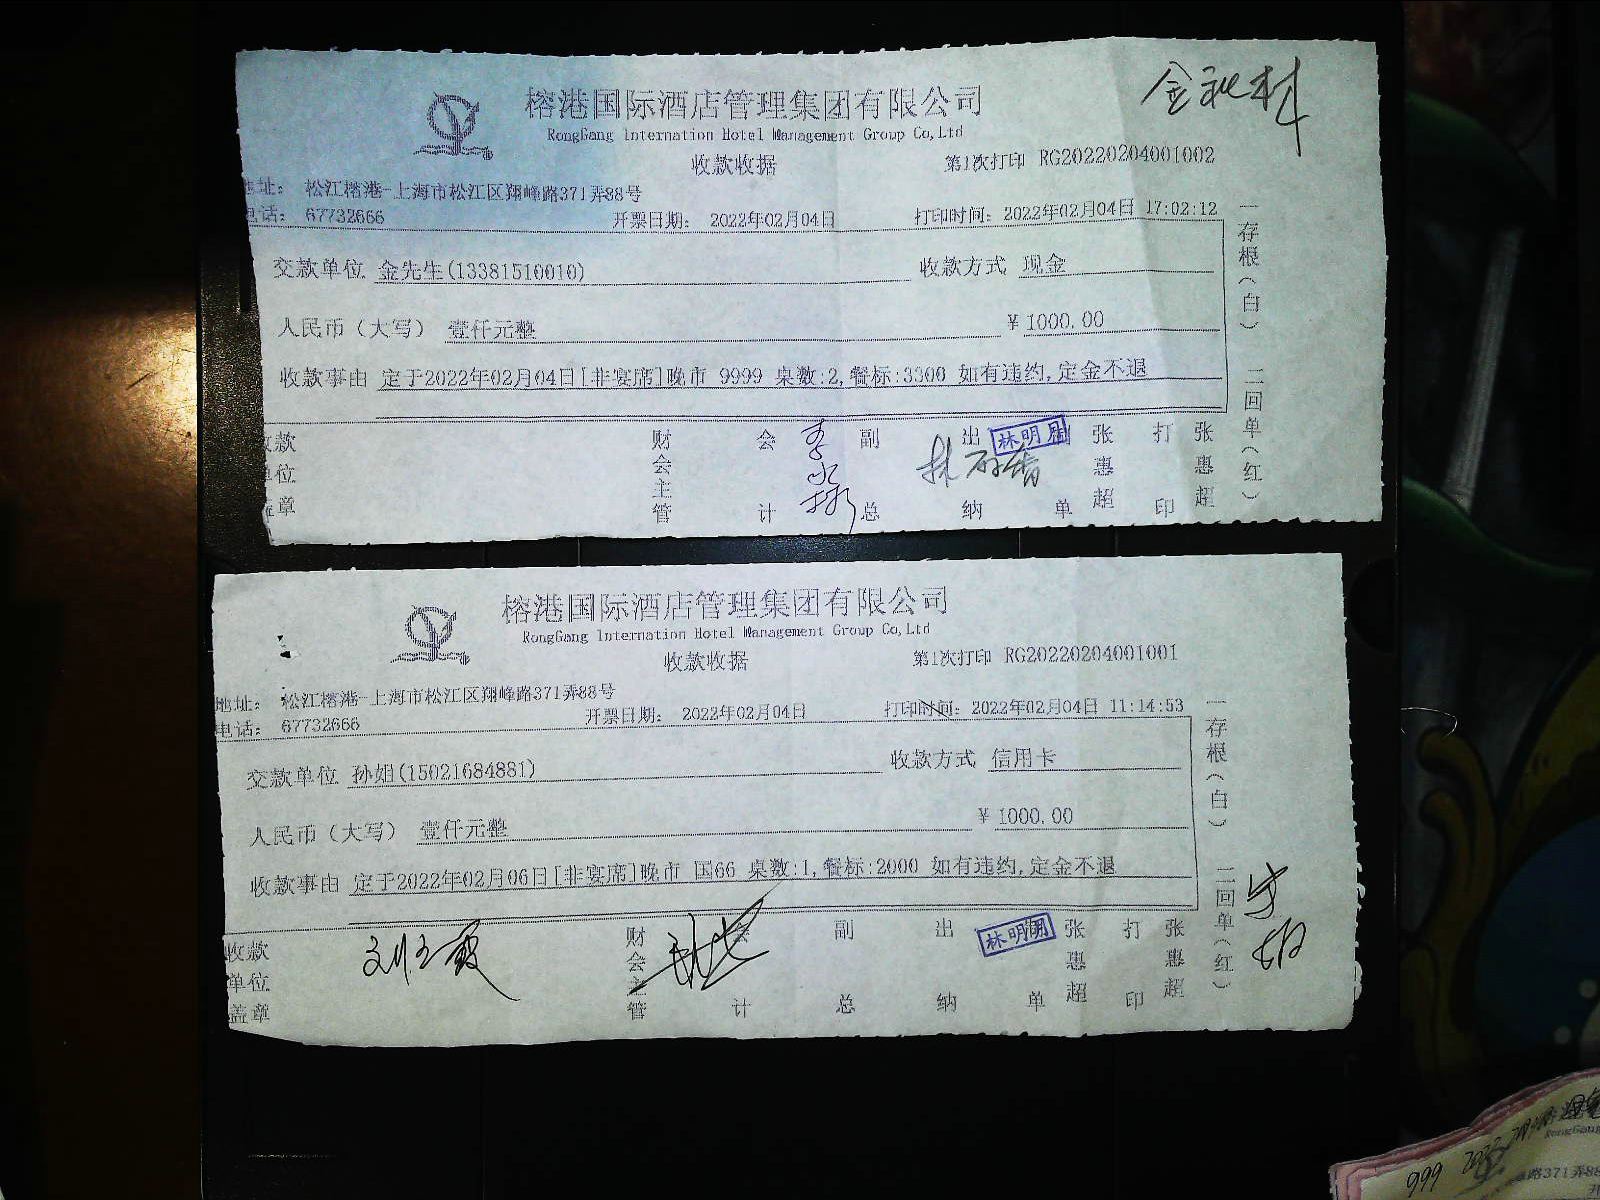 榕港国际酒店管理集团有限公司
RongGang International Hotel Management Group Co,Ltd
收款收据
第1次打印 RG20220204001002
地址： 松江榕港-上海市松江区翔峰路371弄88号
电话： 67732666
开票日期： 2022年02月04日
打印时间：2022年02月04日 17:02:12
交款单位 金先生(13381510010)
收款方式 现金
人民币（大写） 壹仟元整
￥1000.00
收款事由 定于2022年02月04日[非宴席]晚市 9999 桌数:2,餐标:3300 如有违约,定金不退
一存根（白） 二回单（红）
收款单位盖章
财会主管
会计
副总
出纳
林明月
单 张惠超
打印 张惠超
榕港国际酒店管理集团有限公司
RongGang International Hotel Management Group Co,Ltd
收款收据
第1次打印 RG20220204001001
地址： 松江榕港-上海市松江区翔峰路371弄88号
电话： 67732666
开票日期： 2022年02月04日
打印时间：2022年02月04日 11:14:53
交款单位 孙姐(15021684881)
收款方式 信用卡
人民币（大写） 壹仟元整
￥1000.00
收款事由 定于2022年02月06日[非宴席]晚市 国66 桌数:1,餐标:2000 如有违约,定金不退
一存根（白） 二回单（红）
收款单位盖章
财会主管
会计
副总
出纳
林明
单 张惠超
打印 张惠超
RongGang
路371弄88
999